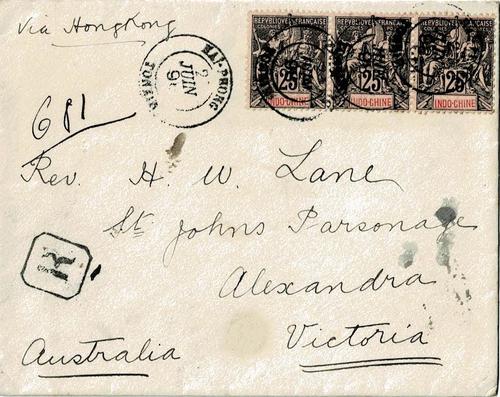 Via Hongkong
HAI-PHONG
2
JUIN
96
TONKIN
REPUBLIQUE FRANÇAISE
COLONIES POSTES
25 25
INDO-CHINE
REPUBLIQUE FRANÇAISE
COLONIES POSTES
25
INDO-CHINE
REPUBLIQUE FRANÇAISE
COLONIES POSTES
25
INDO-CHINE
681
Rev. H. W. Lane
St Johns Parsonage
R
Alexandra
Victoria
Australia